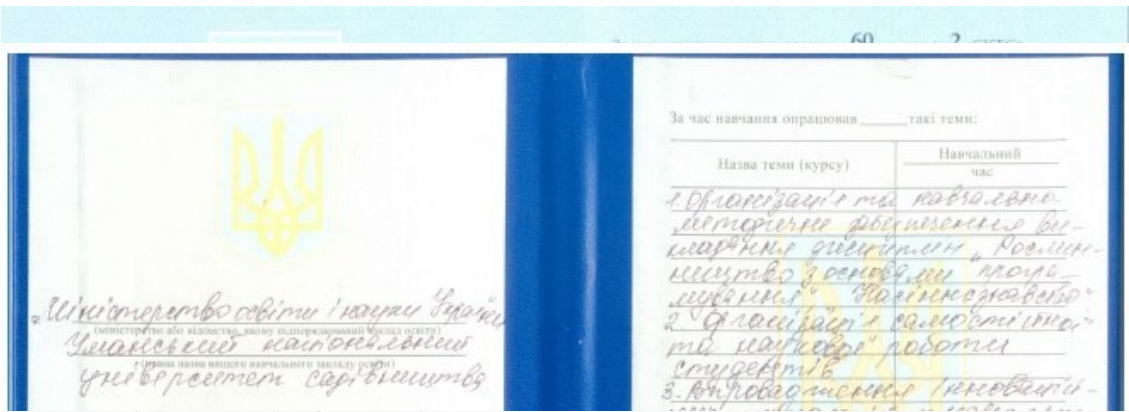 60 2
Міністерство освіти і науки України
(міністерство або відомство, якому підпорядкований заклад освіти)
Уманський національний
(повна назва вищого навчального закладу освіти)
університет садівництва
За час навчання опрацював ______ такі теми:
Назва теми (курсу)
Навчальний
час
1. Організація та навчально-
методичне забезпечення ви-
кладання дисциплін „Рослин-
ництво з основами програ-
мування" „Насіннєзнавство"
2. Організація самостійної
та наукової роботи
студентів
3. Впровадження інновацій-